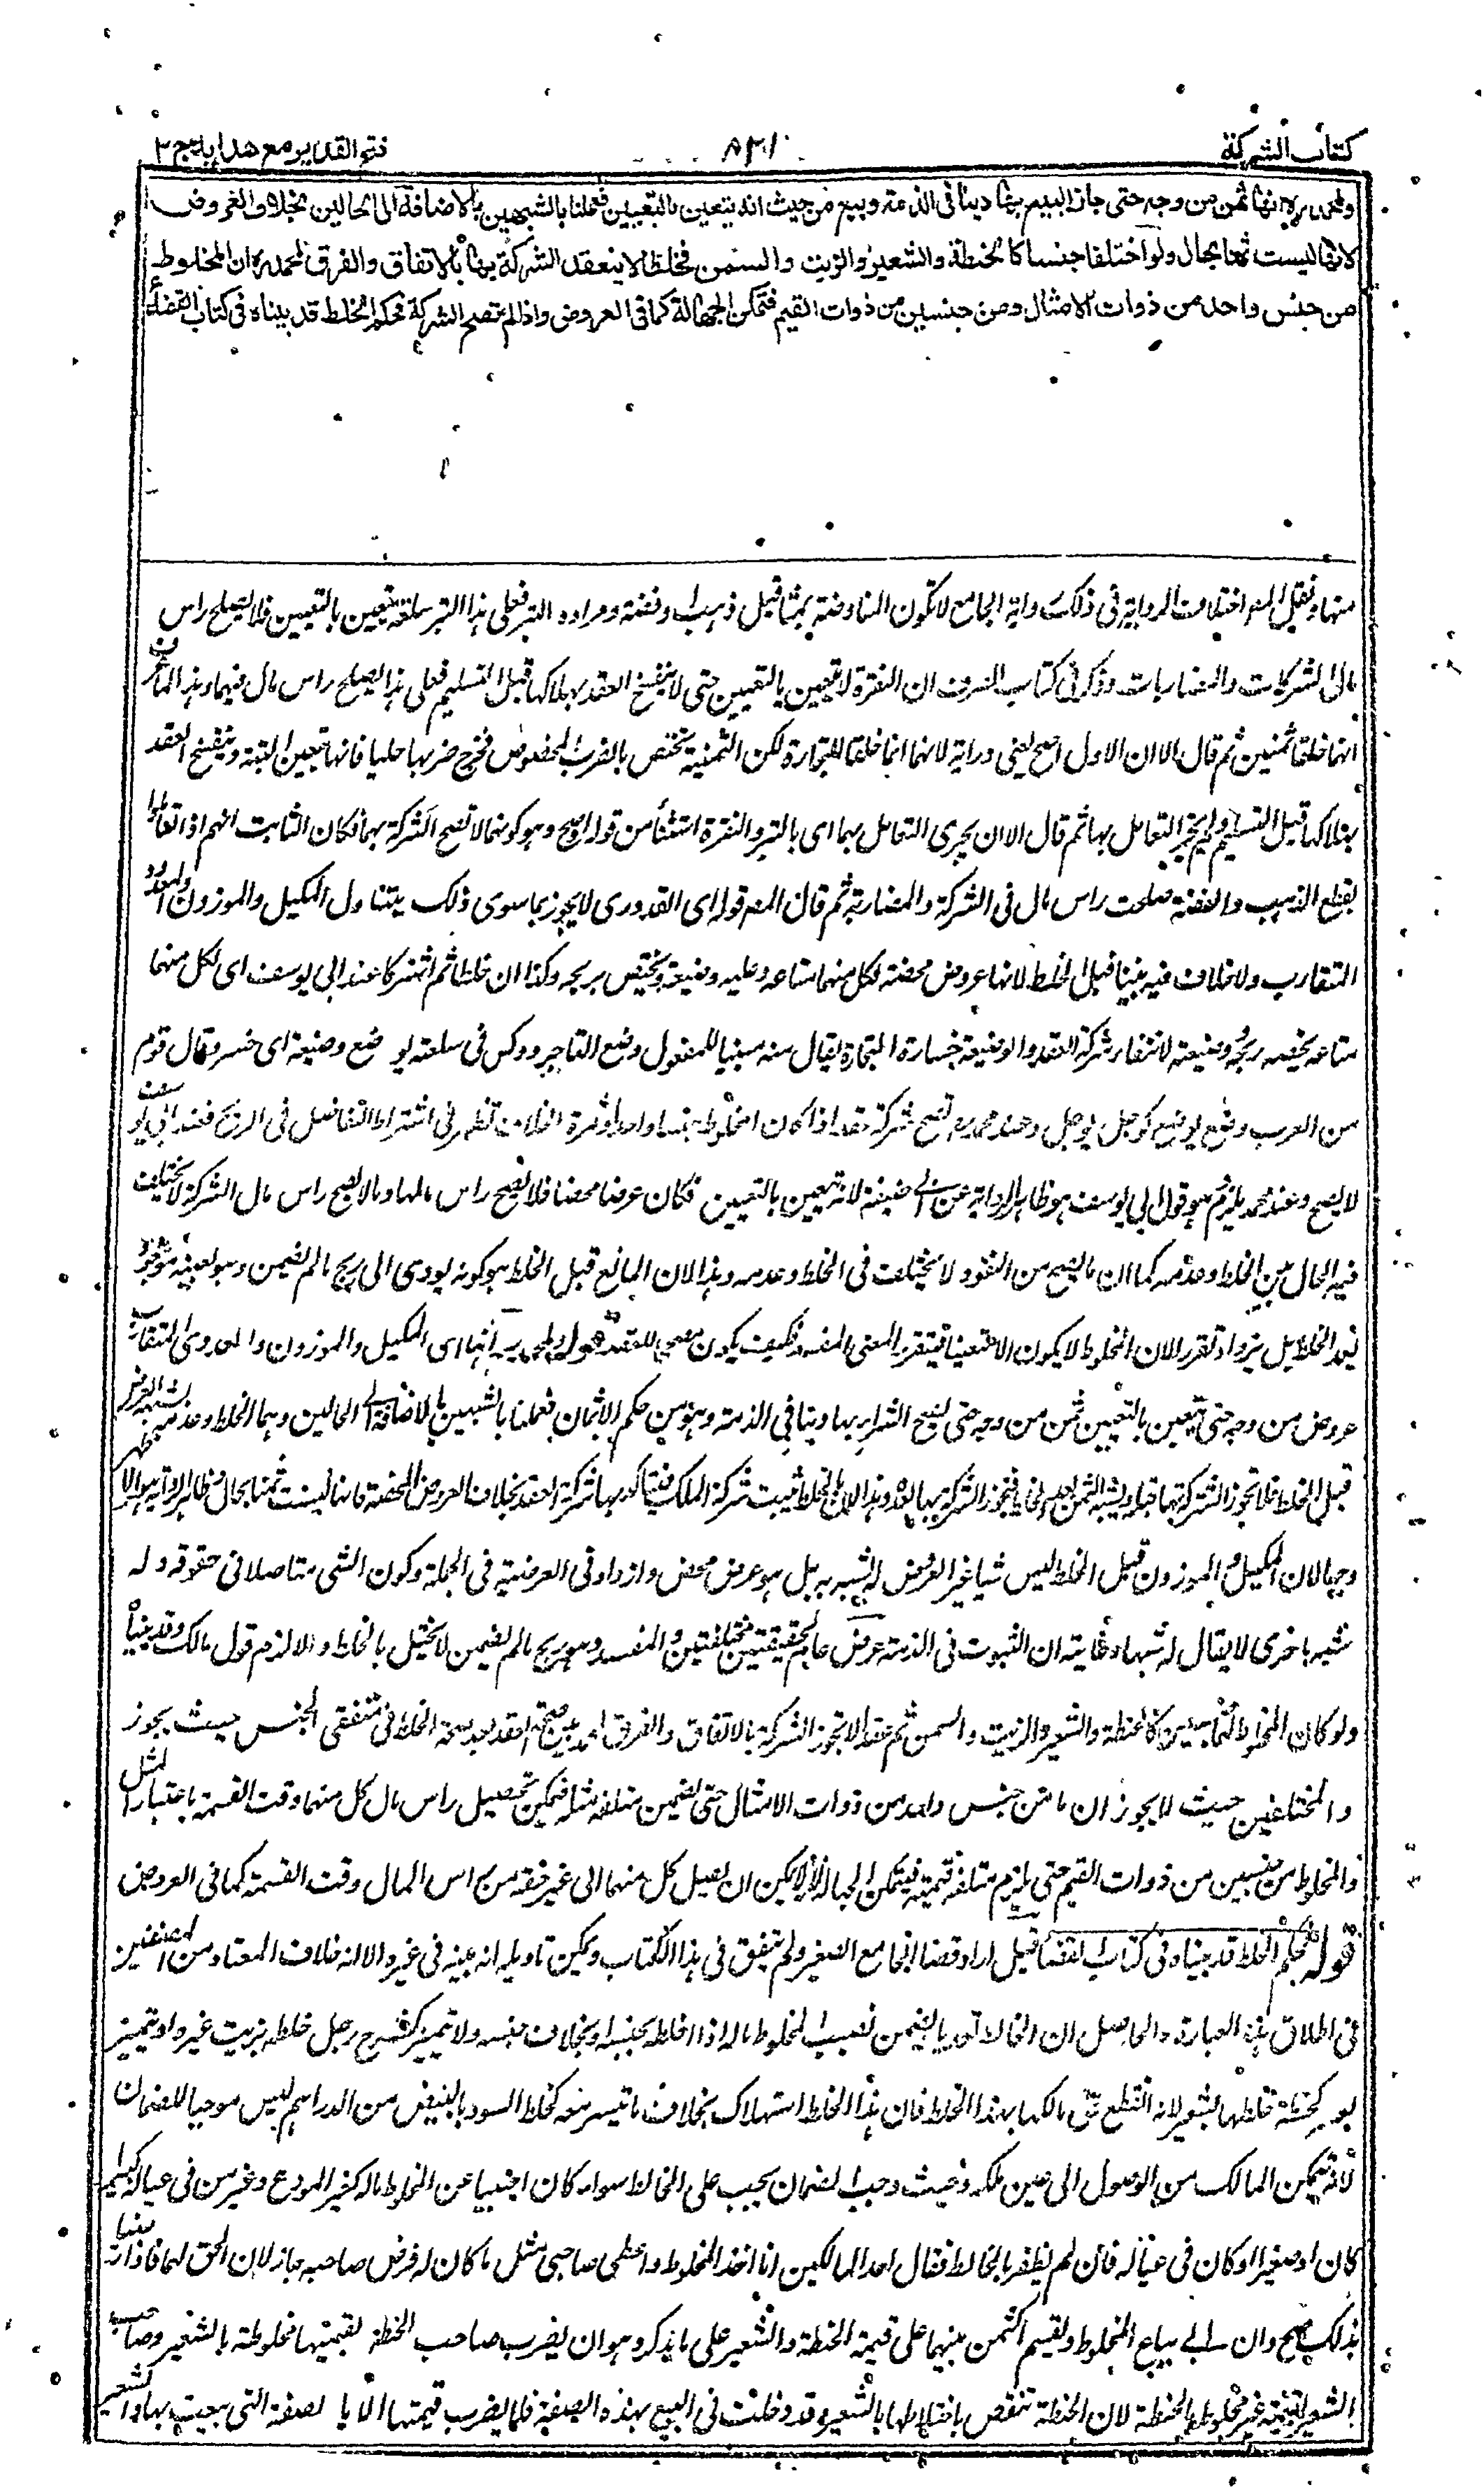 كتاب الشركة
٨٢١
فتح القدير مع هدايه ج ٢
ولمحمد ره انها ثمن من وجه حتى جاز البيع بها دينا في الذمة وبيع من حيث انه يتعين بالتعيين فعملنا بالشبهين بالاضافة الى الحالين بخلاف العروض
لانها ليست ثمنا بحال ولو اختلفا جنسا كالحنطة والشعير والزيت والسمن فخلطا لا ينعقد الشركة بها بالاتفاق والفرق لمحمد ره ان المخلوط
من جنس واحد من ذوات الامثال ومن جنسين من ذوات القيم فتمكن الجهالة كما في العروض واذا لم تصح الشركة فحكم الخلط قد بيناه في كتاب القضاء
منها ونقل المص اختلاف الرواية في ذلك رواية الجامع لا تكون المفاوضة بمثاقيل ذهب او فضة ومراده التبر فعلى هذا التبر سلعة تتعين بالتعيين فلا يصلح راس
مال الشركات والمضاربات وذكر في كتاب الصرف ان النقرة لا تتعين بالتعيين حتى لا ينفسخ العقد بهلاكها قبل التسليم فعلى هذا يصلح راس مال فيهما وهذا لما عرف
انهما خلقا ثمنين ثم قال الا ان الاول اصح يعني دراية لانهما انما خلقا للتجارة لكن الثمنية تختص بالضرب المخصوص فخرج ضربها حليا فانها تتعين البتة وينفسخ العقد
بهلاكها قبل التسليم ولم يجر التعامل بها ثم قال الا ان يجري التعامل بهما اى بالتبر والنقرة استثنا من قوله اصح وهو كونهما لا تصح الشركة بهما فكان الثابت انهم اذا تعاملوا
بقطع الذهب والفضة صلحت راس مال في الشركة والمضاربة ثم قال المص قوله اى القدوري لا يجوز بما سوى ذلك يتناول المكيل والموزون والمعدود
المتقارب ولا خلاف فيه بيننا قبل الخلط لانها عروض محضة لكل منهما متاعه وعليه وضيعته ويختص بربحه وكذا ان خلطا ثم اشتركا عند ابي يوسف اى لكل منهما
متاعه يخصه ربحه وضيعته لانتفاء شركة العقد والوضيعة خسارة التجارة يقال منه مبنيا للمفعول وضع التاجر ووكس في سلعته يوضع وضيعة اى خسر وقال قوم
من العرب وضع يوضع كوجل يوجل وعند محمد ره تصح شركة عقد اذا كان المخلوط جنسا واحدا وثمرة الخلاف تظهر في اشتراط التفاضل في الربح فعند ابي يوسف
لا يصح وعند محمد يلزم وهو قول ابي يوسف هو ظاهر الرواية عن ابي حنيفة لانه يتعين بالتعيين فكان عرضا محضا فلا يصح راس مالها وما لا يصح راس مال الشركة لا يختلف
فيه الحال بين الخلط وعدمه كما ان ما يصح من النقود لا يختلف في الخلط وعدمه وهذا لان المانع قبل الخلط هو كونه يودي الى ربح ما لم يضمن وهو بعينه موجود
بعد الخلط بل يزداد تقررا لان المخلوط لا يكون الا متعينا فيتقرر المعنى المفسد فكيف يكون مصححا للعقد قوله ولمحمد ره انها اى المكيل والموزون والعددي المتقارب
عروض من وجه حتى تتعين بالتعيين ثمن من وجه حتى يصح الشراء بها دينا في الذمة وهو من حكم الاثمان فعملنا بالشبهين بالاضافة الى الحالين وهما الخلط وعدمه فشبه العرض يظهر
قبل الخلط فلا تجوز الشركة بها قبله وشبه الثمن بعده فتجوز الشركة بها بعده وهذا لان بالخلط تثبت شركة الملك فيتاكد بها شركة العقد بخلاف العروض المحضة فانها ليست ثمنا بحال وظاهر الرواية هو الاولى
وجها لان المكيل والموزون قبل الخلط ليس شيا غير العرض ليشبه به بل هو عرض محض وازداد في العرضية في الجملة وكون الشي متاصلا في حقوقه وله
شبه باخرى لا يقال له شبها وغايته ان الثبوت في الذمة عرض عام لحقيقتين مختلفتين والمفسد وهو ربح ما لم يضمن لا يختل بالخلط والا لزم قول مالك وقد بيناه
ولو كان المخلوط جنسين كالحنطة والشعير والزيت والسمن ثم عقدا لا تجوز الشركة بالاتفاق والفرق لمحمد بين صحة العقد بعد الخلط في متفقي الجنس حيث يجوز
والمختلفين حيث لا يجوز ان ما من جنس واحد من ذوات الامثال حتى يضمن متلفه مثله فيمكن تحصيل راس مال كل منهما وقت القسمة باعتبار المثل
والمخلوط من جنسين من ذوات القيم حتى يلزم متلفه قيمته فيتمكن الجهالة اذ لا يمكن ان يصل كل منهما الى عين حقه من راس المال وقت القسمة كما في العروض
قوله فحكم الخلط قد بيناه في كتاب القضاء قيل اراد قضاء الجامع الصغير ولم يتفق في هذا الكتاب ويمكن تاويله انه بينه في غيره الا انه خلاف المعتاد من المصنفين
في اطلاق هذه العبارة والحاصل ان الخالط تعديا يضمن نصيب المخلوط ماله اذا خلطه بجنسه او بخلاف جنسه ولا تميز كشيرج رجل خلطه بزيت غيره او يتميز
بعسر كحنطة خلطها بشعير لانه انقطع حق مالكها بهذا الخلط فان هذا الخلط استهلاك بخلاف ما تيسر معه كخلط السود بالبيض من الدراهم ليس موجبا للضمان
لانه يتمكن المالك من الوصول الى عين ملكه وحيث وجب الضمان يجب على الخالط سواء كان اجنبيا عن المخلوط ماله كغير المودع وغير من في عياله كبيرا
كان او صغيرا او كان في عياله فان لم يظفر بالخالط فقال احد المالكين انا اخذ المخلوط واعطي صاحبي مثل ما كان له فرضي صاحبه جاز لان الحق لهما فاذا رضيا
بذلك صح وان ابى يباع المخلوط ويقسم الثمن بينهما على قيمة الحنطة والشعير على ما يذكر وهو ان يضرب صاحب الحنطة بقيمتها مخلوطة بالشعير وصاحب
الشعير بقيمته غير مخلوط بالحنطة لان الحنطة تنقص باختلاطها بالشعير وقد دخلت في البيع بهذه الصفة فلا يضرب بقيمتها الا بالصفة التي بيعت بها والشعير